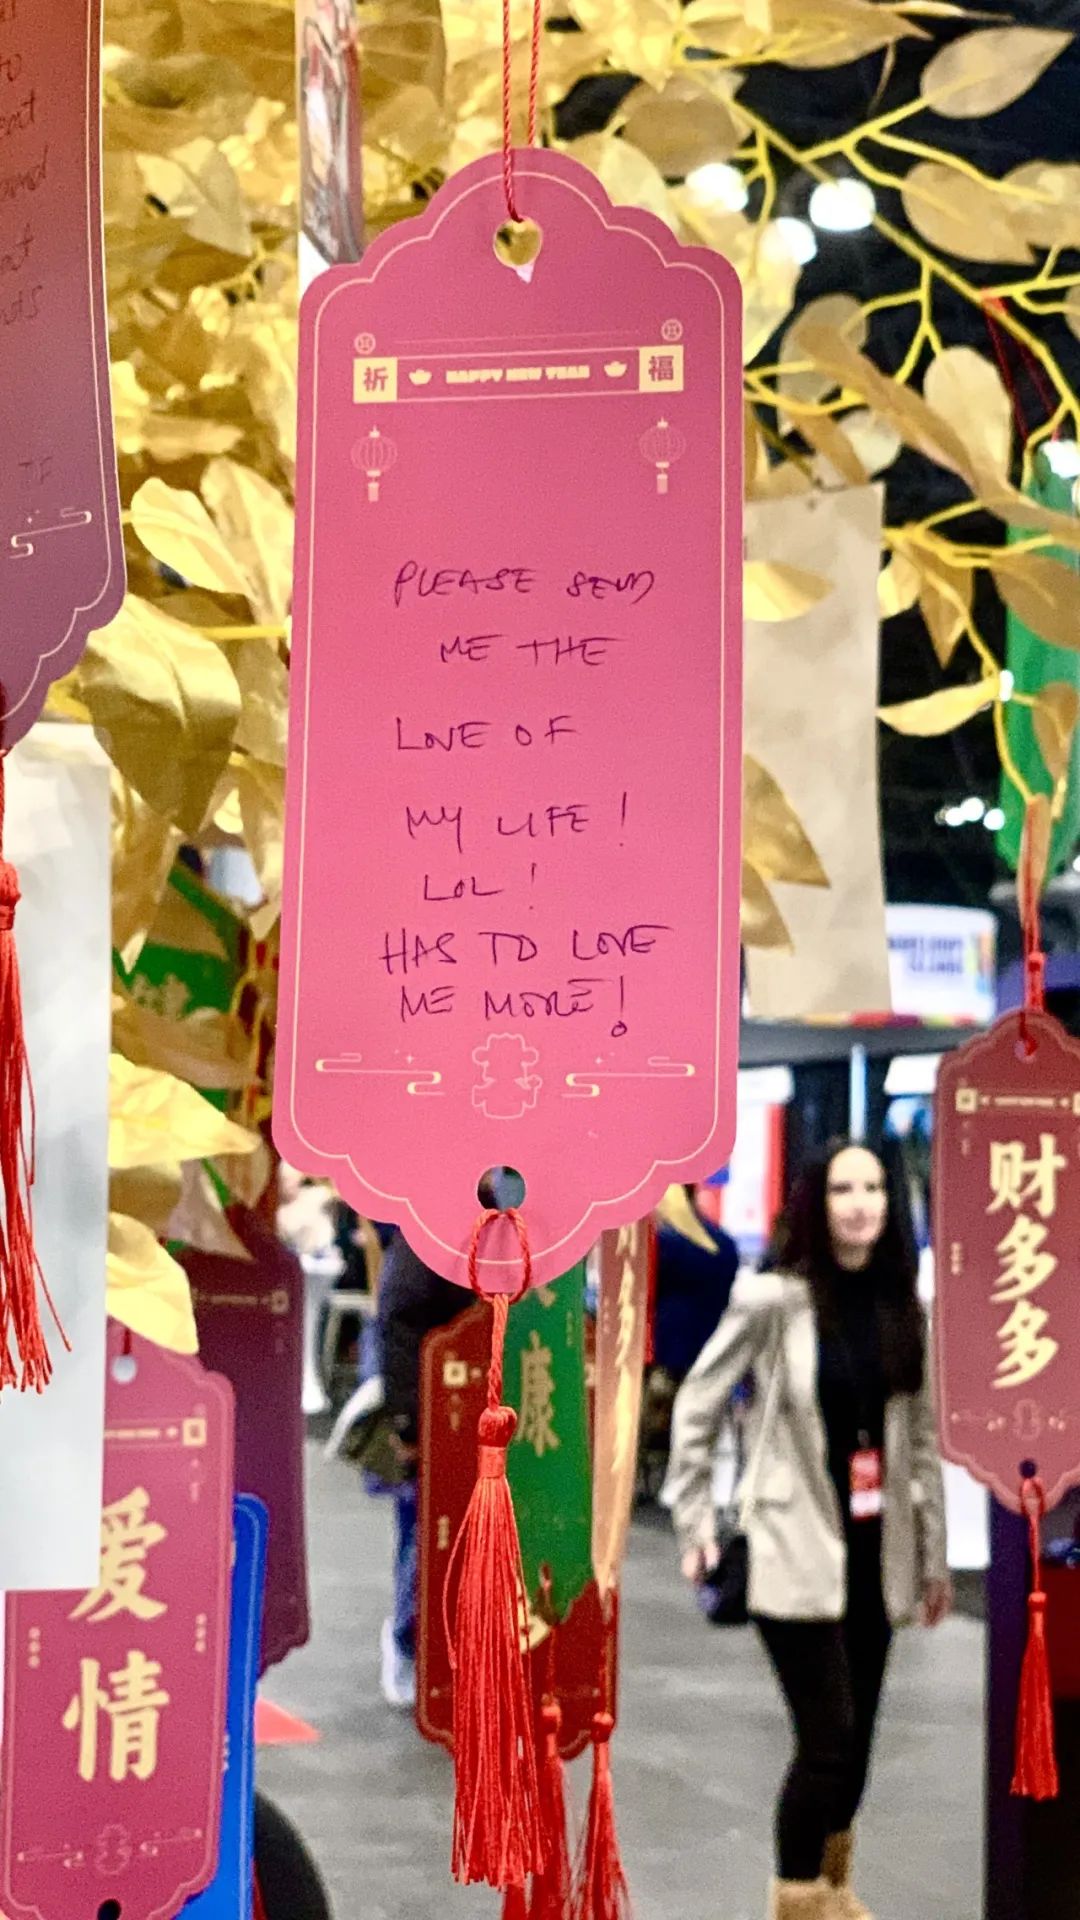 祈 HAPPY NEW YEAR 福
PLEASE SEND
ME THE
LOVE OF
MY LIFE !
LOL !
HAS TO LOVE
ME MORE!
to
and
TF
财多多
康
爱情